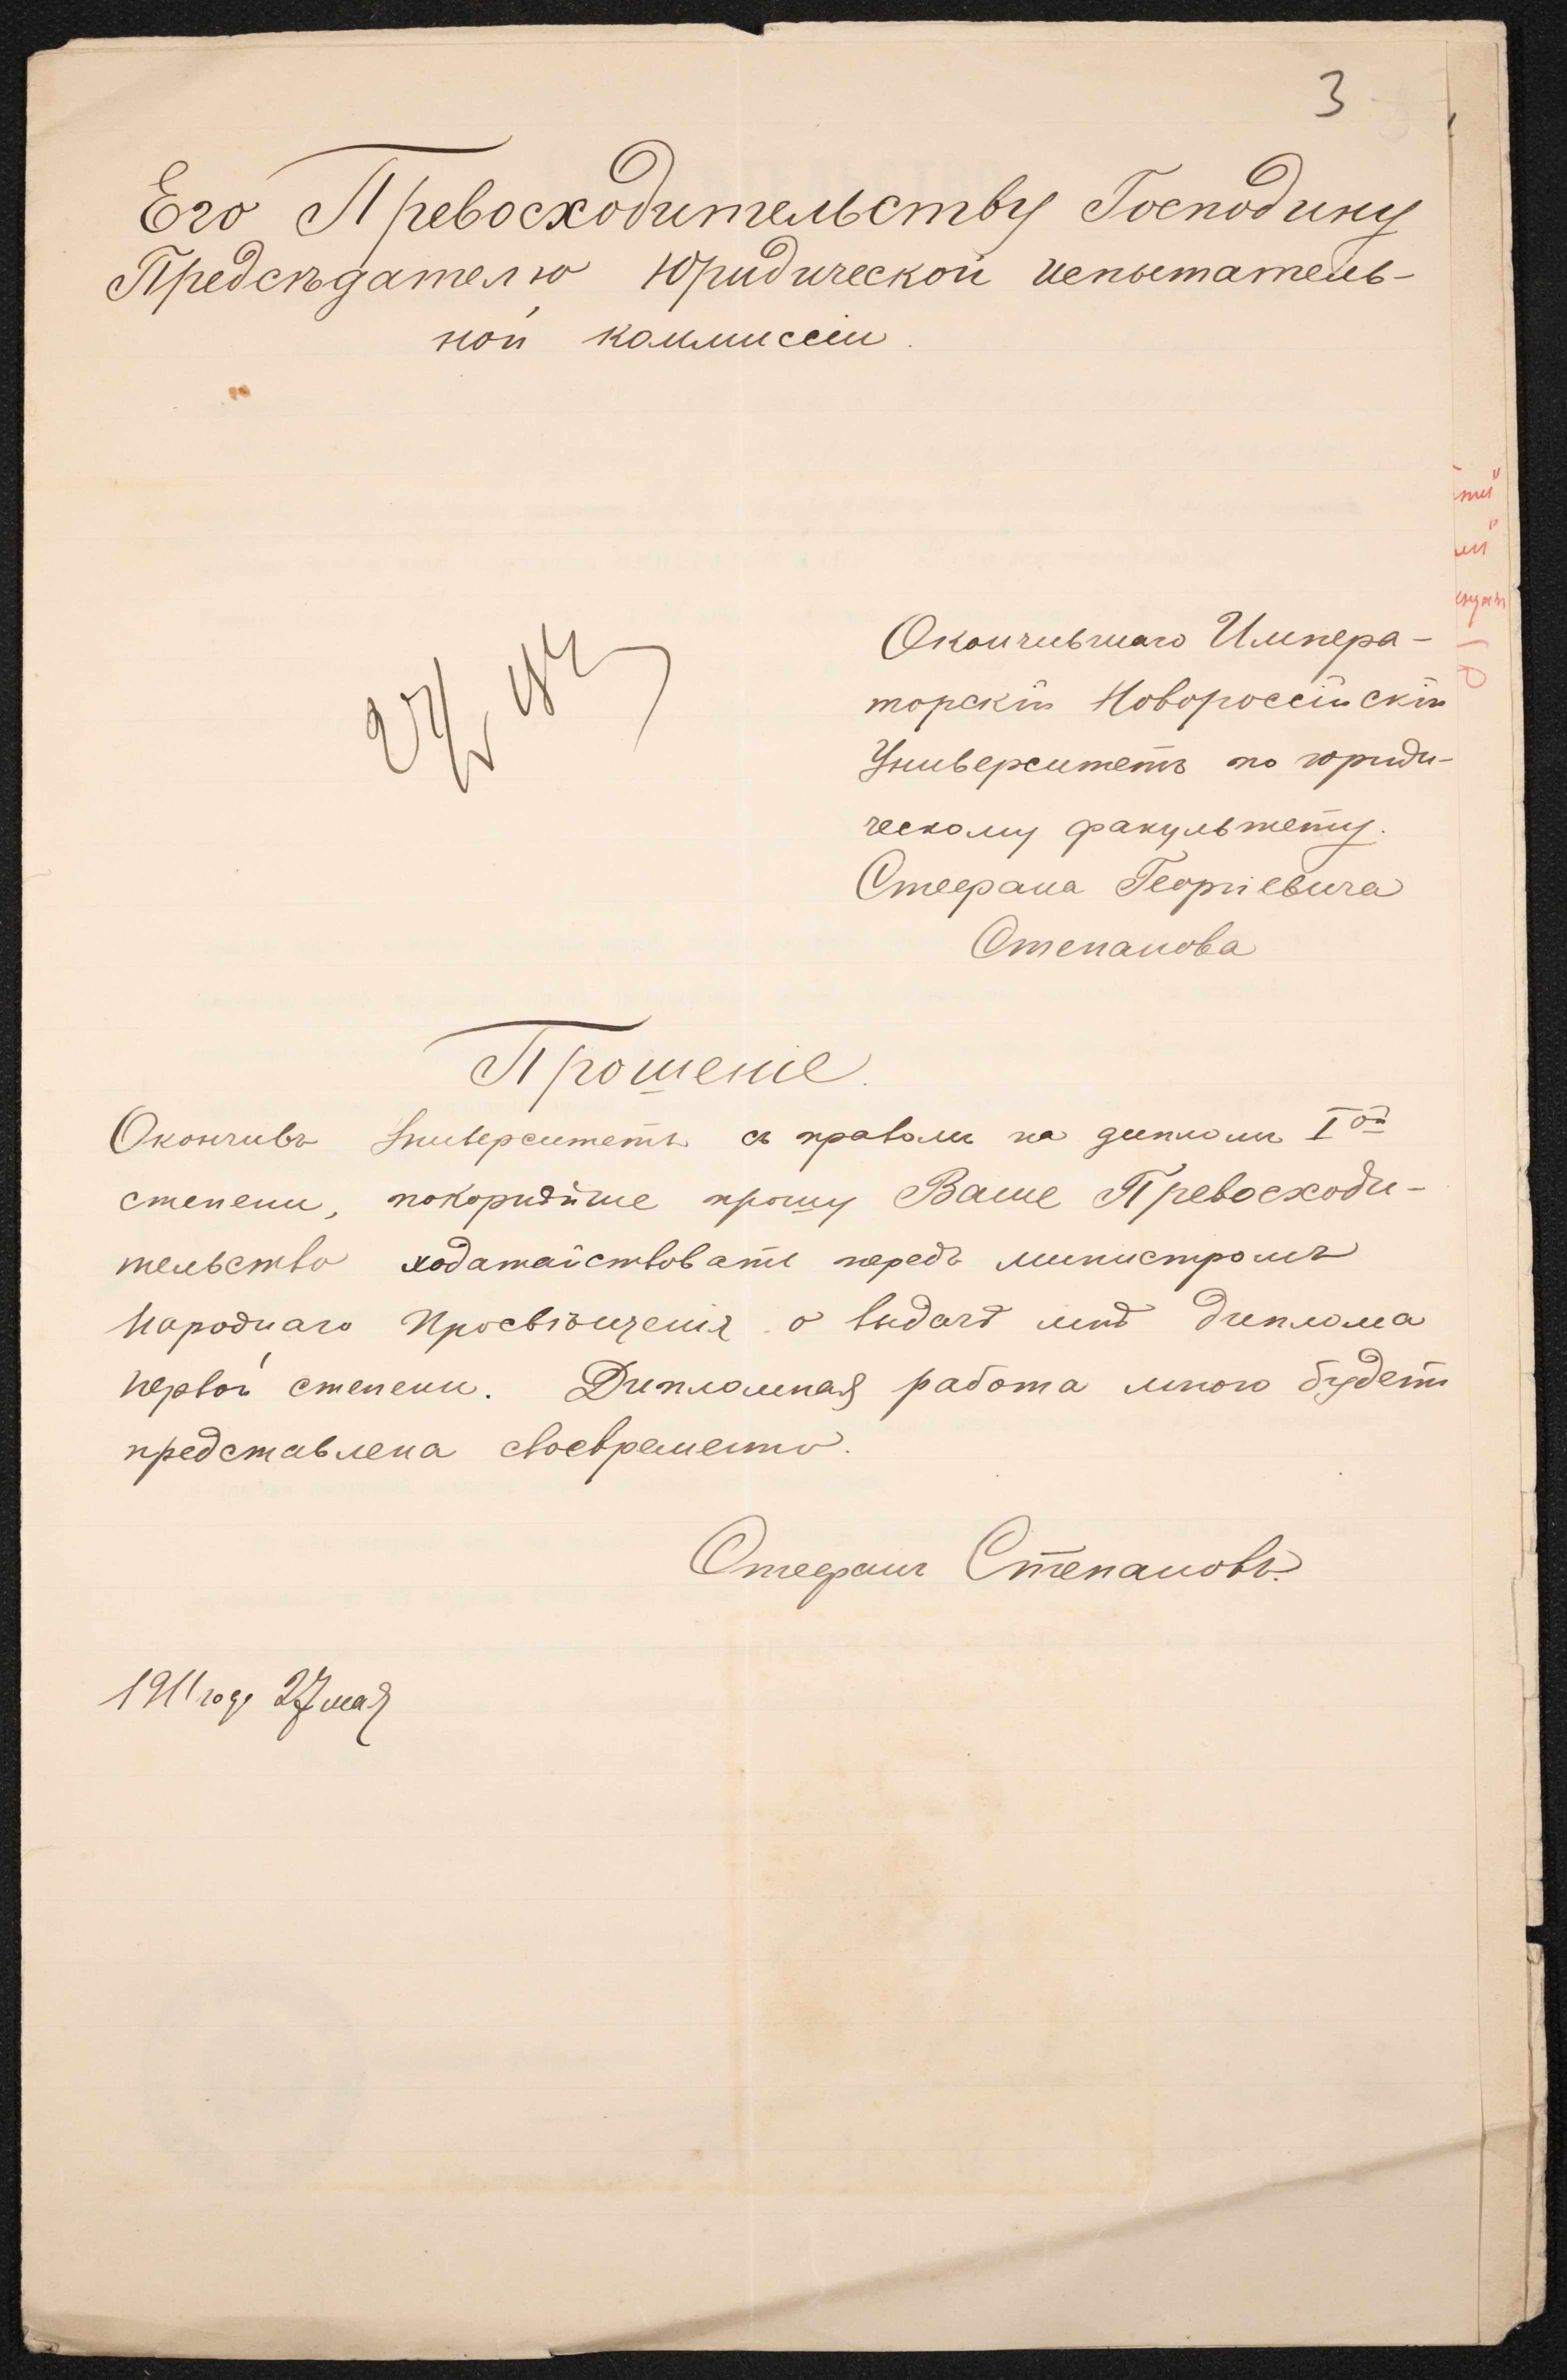 3
Его Превосходительству Господину
Предсѣдателю Юридической испытатель-
ной коммиссіи.
Окончившаго Импера-
торскій Новороссійскій
Университетъ по юриди-
ческому факультету.
Стефана Георгіевича
Степанова
Прошеніе.
Окончивъ Университетъ съ правомъ на дипломъ I ой
степени, покорнѣйше прошу Ваше Превосходи-
тельство ходатайствовать передъ министромъ
Народнаго Просвѣщенія о выдачѣ мнѣ диплома
первой степени. Дипломная работа мною будетъ
представлена своевременно.
Стефанъ Степановъ.
1911 года 27 мая